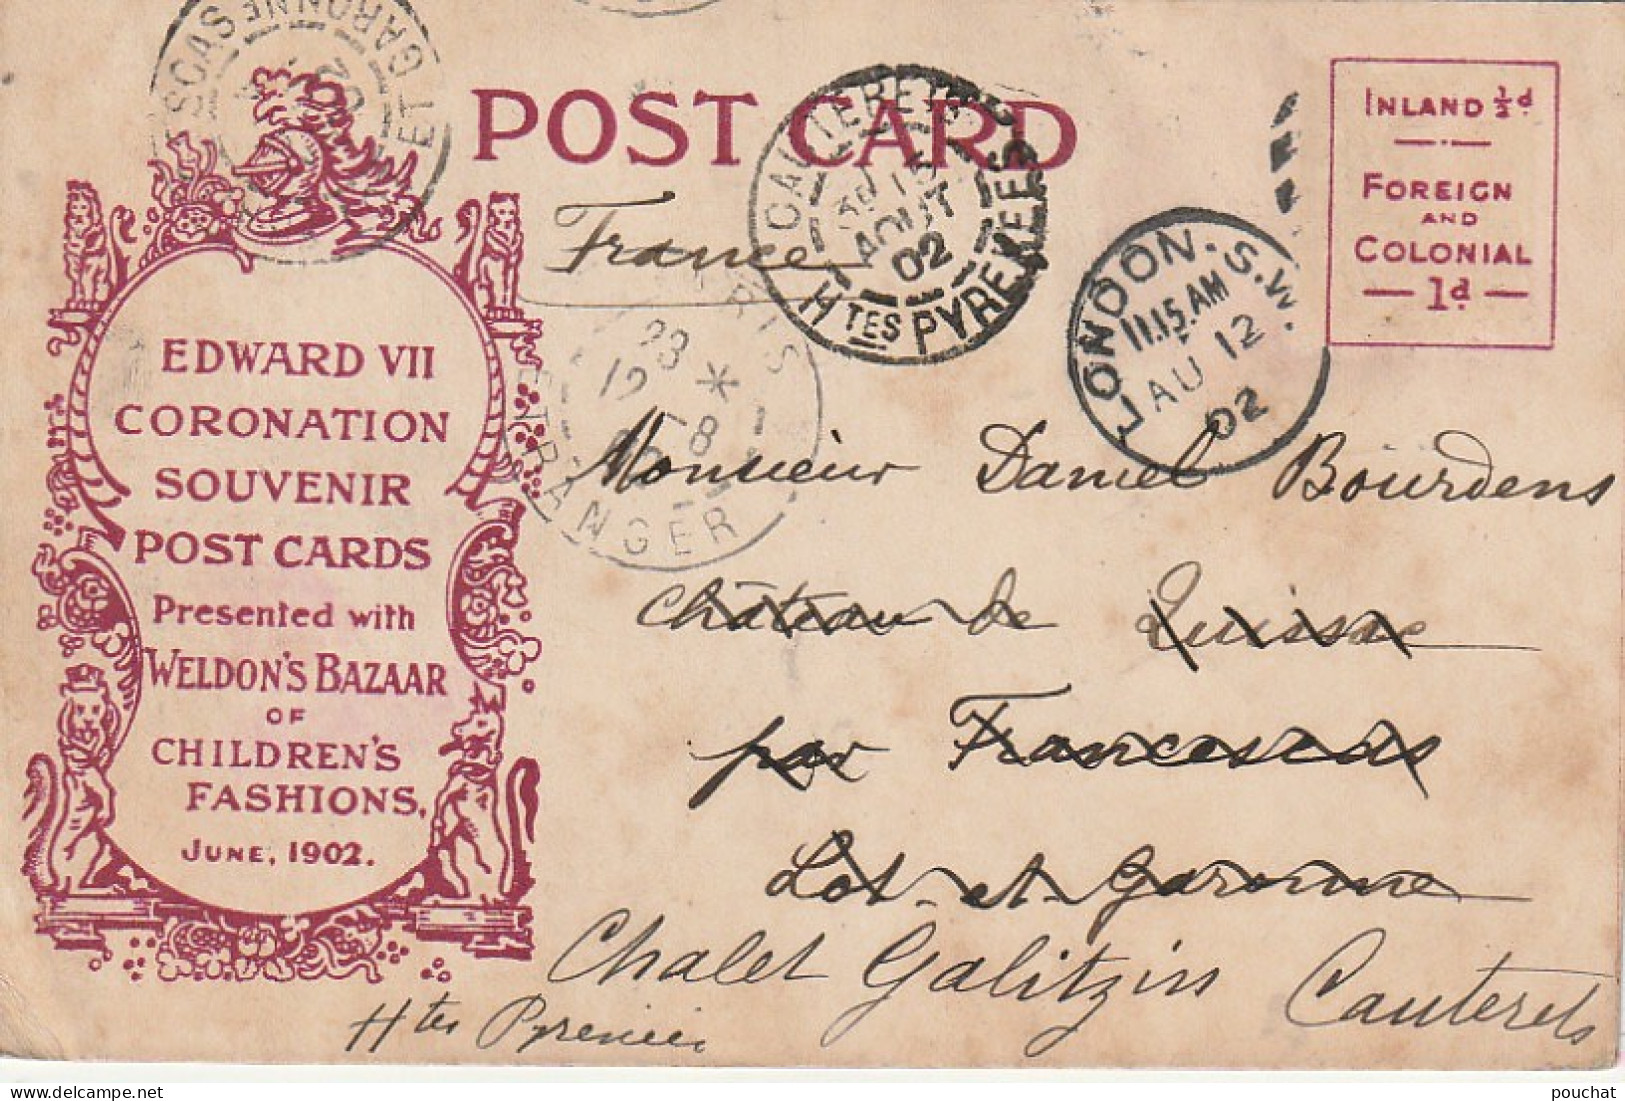 POST CARD
INLAND ½d
FOREIGN
AND
COLONIAL
1d
France
CAUTERETS
15
AOUT
02
Htes PYRENEES
LONDON. S.W.
11.15.AM
AU 12
02
ET GARONNE
02
PARIS
23
12 -8
ETRANGER
EDWARD VII
CORONATION
SOUVENIR
POST CARDS
Presented with
WELDON'S BAZAAR
OF
CHILDREN'S
FASHIONS,
JUNE, 1902.
Monsieur Daniel Bourdens
Château de Quissac
par Francescas
Lot-et-Garonne
Chalet Galitzin Cauterets
Htes Pyrénées
pouchat